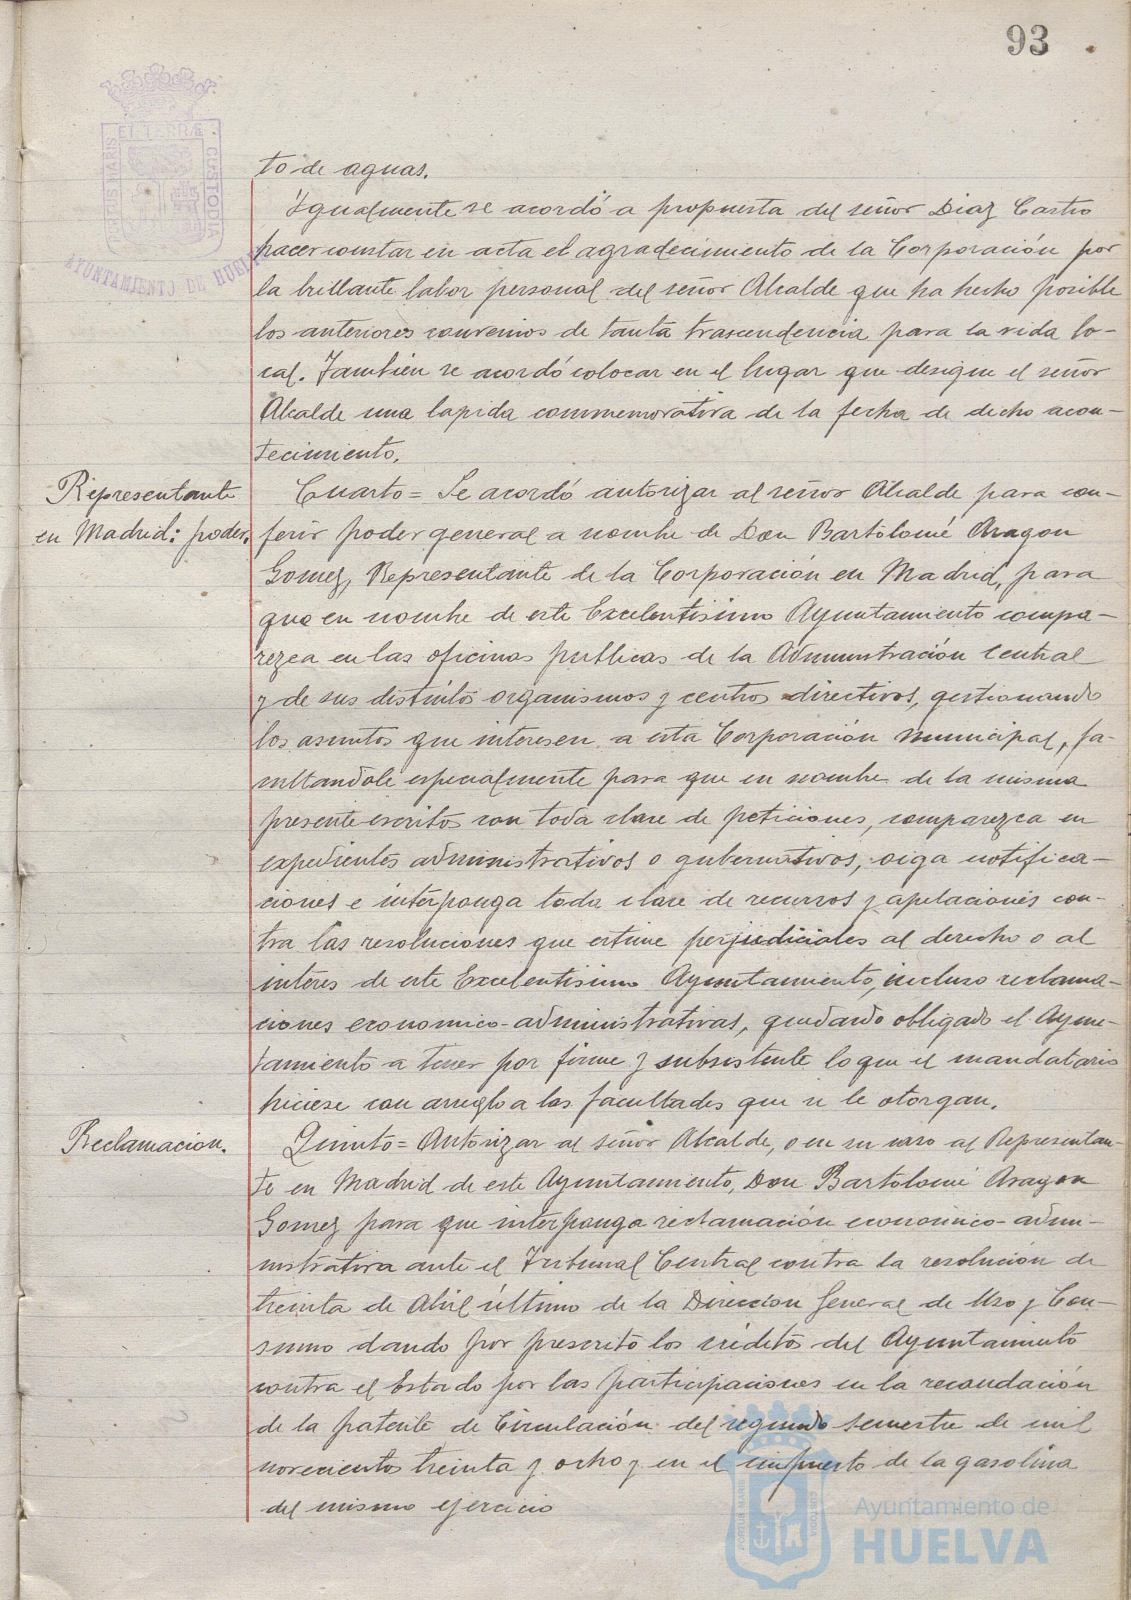 93
PORTUS MARIS
ET TERRÆ
CUSTODIA
AYUNTAMIENTO DE HUELVA
to de aguas.
Igualmente se acordó a propuesta del señor Diaz Castro
hacer constar en acta el agradecimiento de la Corporación por
la brillante labor personal del señor Alcalde que ha hecho posible
los anteriores convenios de tanta trascendencia para la vida lo-
cal. Tambien se acordó colocar en el lugar que designe el señor
Alcalde una lapida conmemorativa de la fecha de dicho acon-
tecimiento.
Representante
en Madrid: poder.
Cuarto = Se acordó autorizar al señor Alcalde para con-
ferir poder general a nombre de Don Bartolomé Aragon
Gomez, Representante de la Corporación en Madrid, para
que en nombre de este Excelentisimo Ayuntamiento compa-
rezca en las oficinas publicas de la Administración Central
y de sus distintos organismos y centros directivos, gestionando
los asuntos que interesen a esta Corporación municipal, fa-
cultandole especialmente para que en nombre de la misma
presente escritos con toda clase de peticiones, comparezca en
expedientes administrativos o gubernativos, oiga notifica-
ciones e interponga toda clase de recursos y apelaciones con-
tra las resoluciones que estime perjudiciales al derecho o al
interes de este Excelentisimo Ayuntamiento, incluso reclama-
ciones economico-administrativas, quedando obligado el Ayun-
tamiento a tener por firme y subsistente lo que el mandatario
hiciese con arreglo a las facultades que se le otorgan.
Reclamacion.
Quinto = Autorizar al señor Alcalde, o en su caso al Representan-
te en Madrid de este Ayuntamiento, Don Bartolomé Aragon
Gomez para que interponga reclamación económico-admi-
nistrativa ante el Tribunal Central contra la resolución de
treinta de Abril último de la Direccion General de Uso y Con-
sumo dando por prescrito los créditos del Ayuntamiento
contra el Estado por las participaciones en la recaudación
de la patente de Circulación del segundo semestre de mil
novecientos treinta y ocho y en el impuesto de la gasolina
del mismo ejercicio
PORTUS MARIS
CUSTODIA
Ayuntamiento de
HUELVA